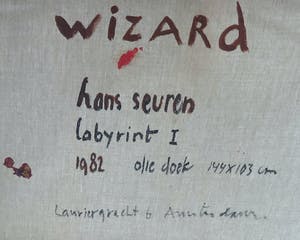 WIZARd
hans seuren
labyrint I
1982 olie doek 144x103 cm
Lauriergracht 6 Amsterdam.